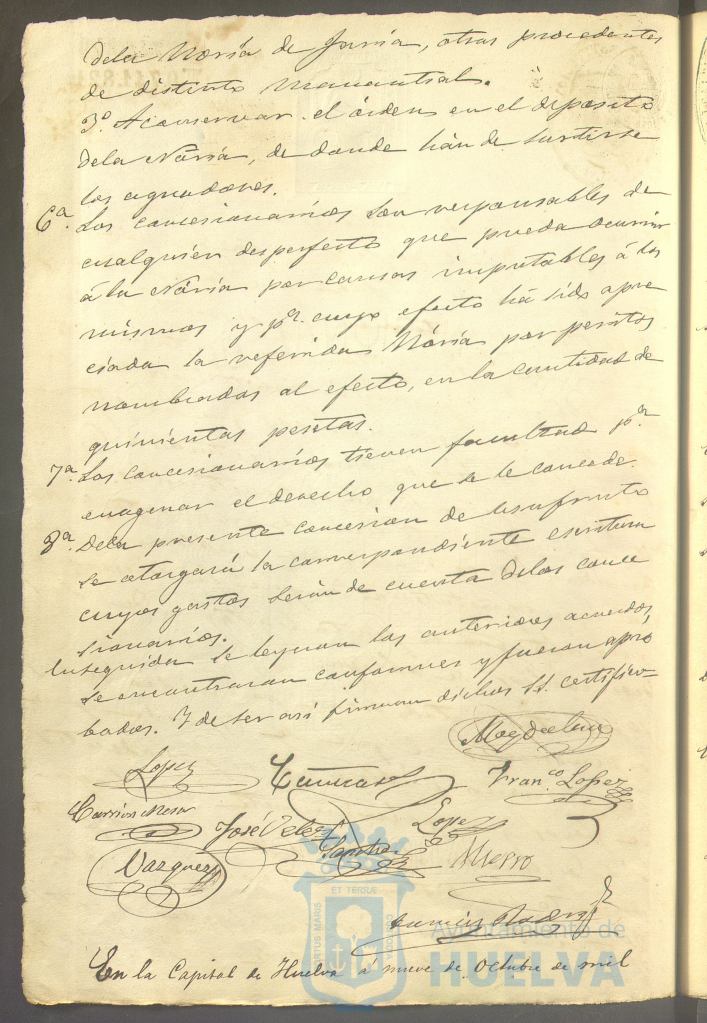 dela Noria de , otras procedentes
de distinto manantial.
3º. A conservar el órden en el deposito
dela Noria, de donde hán de surtirse
los aguadores.
6ª. Los concesionarios son responsables de
cualquier desperfecto que pueda ocurrir
á la Nória por causas imputables á los
mismos y pr. cuyo efecto há sido apre
ciada la referida Nória por peritos
nombrados al efecto, en la cantidad de
quinientas pesetas.
7ª. Los concesionarios tienen facultad pr.
enagenar el derecho que se le concede.
8ª. Dela presente concesion de usufruto
se otorgará la correspondiente escritura
cuyos gastos serán de cuenta delos conce
sionarios.
Enseguida se leyeron los anteriores acuerdos
se encontraron conformes y fueron apro
bados. Y de ser así firman dichos SS. certifico-
Magdalena
Lopez
Franco. Lopez
Carrion Mesa
José Velez
Lopez
Sanchez
Vazquez
En la Capital de Huelva á nueve de Octubre de mil
ET TERRÆ
PORTUS MARIS
CUSTODIA
Ayuntamiento de
HUELVA